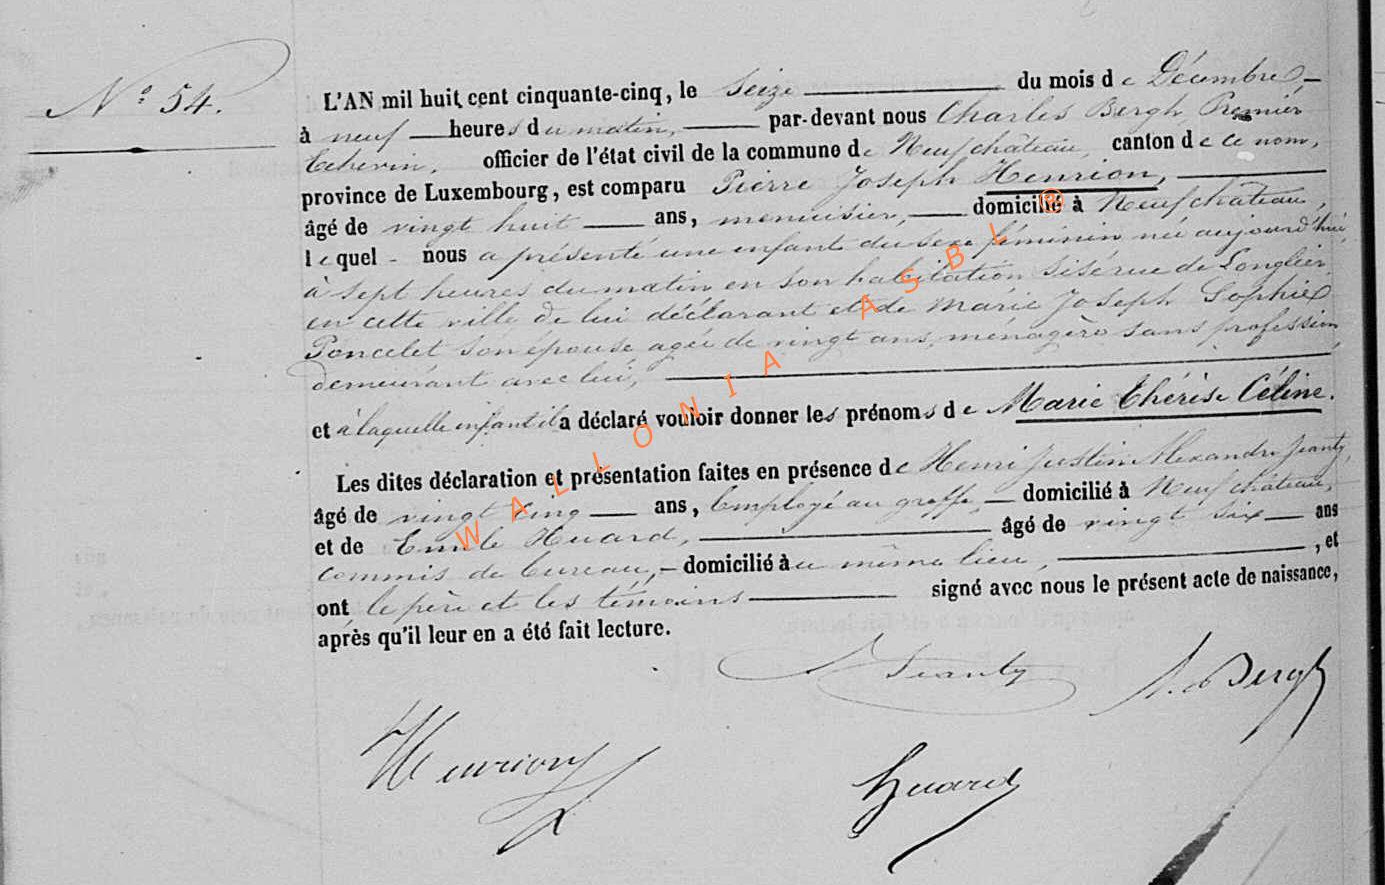 N° 54.
L'AN mil huit cent cinquante-cinq, le Seize du mois de Décembre
à neuf heures du matin, par-devant nous Charles Bergh Premier
Echevin, officier de l'état civil de la commune de Neufchâteau, canton de ce nom,
province de Luxembourg, est comparu Pierre Joseph Henrion,
âgé de vingt huit ans, menuisier, domicilié à Neufchâteau,
lequel nous a présenté une enfant du sexe féminin née aujourd'hui,
à sept heures du matin en son habitation sise rue de Longlier
en cette ville de lui déclarant et de Marie Joseph Sophie
Poncelet son épouse agée de vingt ans, ménagère sans profession
demeurant avec lui,
et à laquelle enfant il a déclaré vouloir donner les prénoms de Marie Thérèse Céline.
Les dites déclaration et présentation faites en présence de Henri Justin Alexandre Jeanty,
âgé de vingt cinq ans, Employé au greffe, domicilié à Neufchâteau,
et de Emile Huard, âgé de vingt six ans
commis de bureau, domicilié au même lieu, , et
ont le père et les témoins signé avec nous le présent acte de naissance,
après qu'il leur en a été fait lecture.
Jeanty Bergh
Henrion Huard
WALLONIA ASBL ®